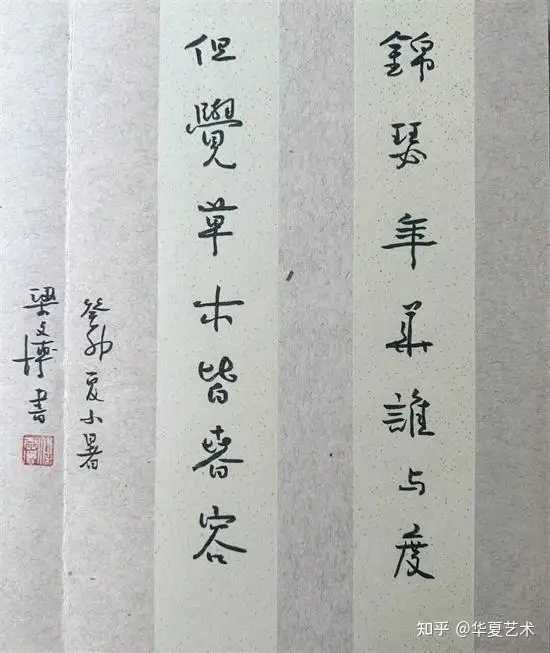 錦瑟年华誰与度
但覺草木皆春容
癸卯夏小暑
梁文博書
知乎 @华夏艺术